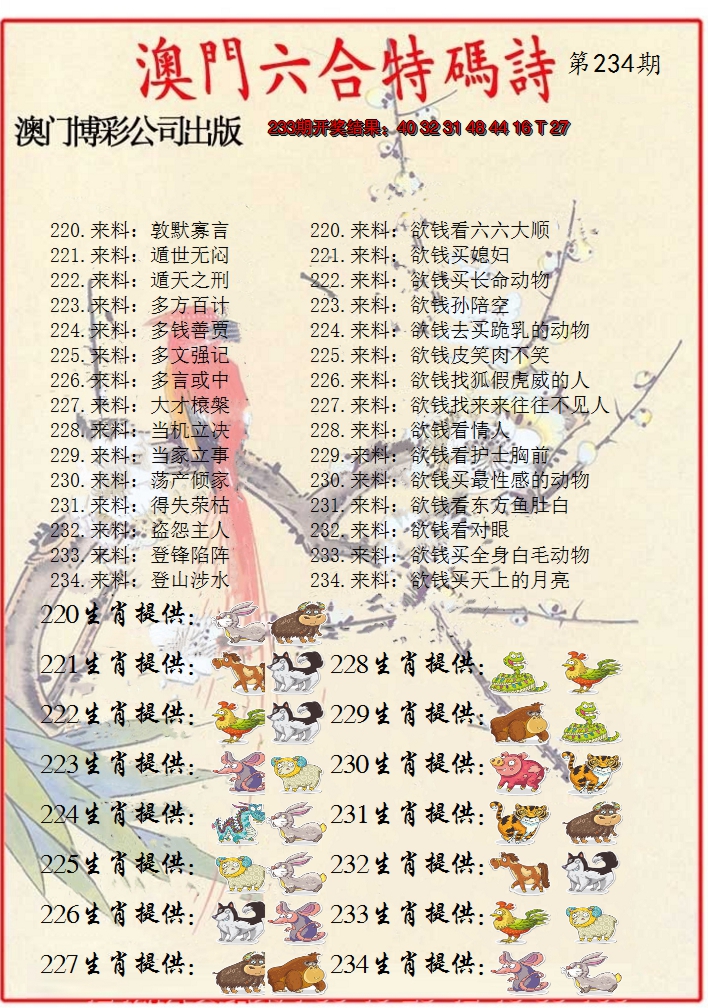 澳門六合特碼詩 第234期
澳门博彩公司出版 233期开奖结果：40 32 31 48 44 16 T 27
220.来料：敦默寡言 220.来料：欲钱看六六大顺
221.来料：遁世无闷 221.来料：欲钱买媳妇
222.来料：遁天之刑 222.来料：欲钱买长命动物
223.来料：多方百计 223.来料：欲钱孙陪空
224.来料：多钱善贾 224.来料：欲钱去买跪乳的动物
225.来料：多文强记 225.来料：欲钱皮笑肉不笑
226.来料：多言或中 226.来料：欲钱找狐假虎威的人
227.来料：大才榱槃 227.来料：欲钱找来来往往不见人
228.来料：当机立决 228.来料：欲钱看情人
229.来料：当家立事 229.来料：欲钱看护士胸前
230.来料：荡产倾家 230.来料：欲钱买最性感的动物
231.来料：得失荣枯 231.来料：欲钱看东方鱼肚白
232.来料：盗怨主人 232.来料：欲钱看对眼
233.来料：登锋陷阵 233.来料：欲钱买全身白毛动物
234.来料：登山涉水 234.来料：欲钱买天上的月亮
220生肖提供：
221生肖提供： 228生肖提供：
222生肖提供： 229生肖提供：
223生肖提供： 230生肖提供：
224生肖提供： 231生肖提供：
225生肖提供： 232生肖提供：
226生肖提供： 233生肖提供：
227生肖提供： 234生肖提供：